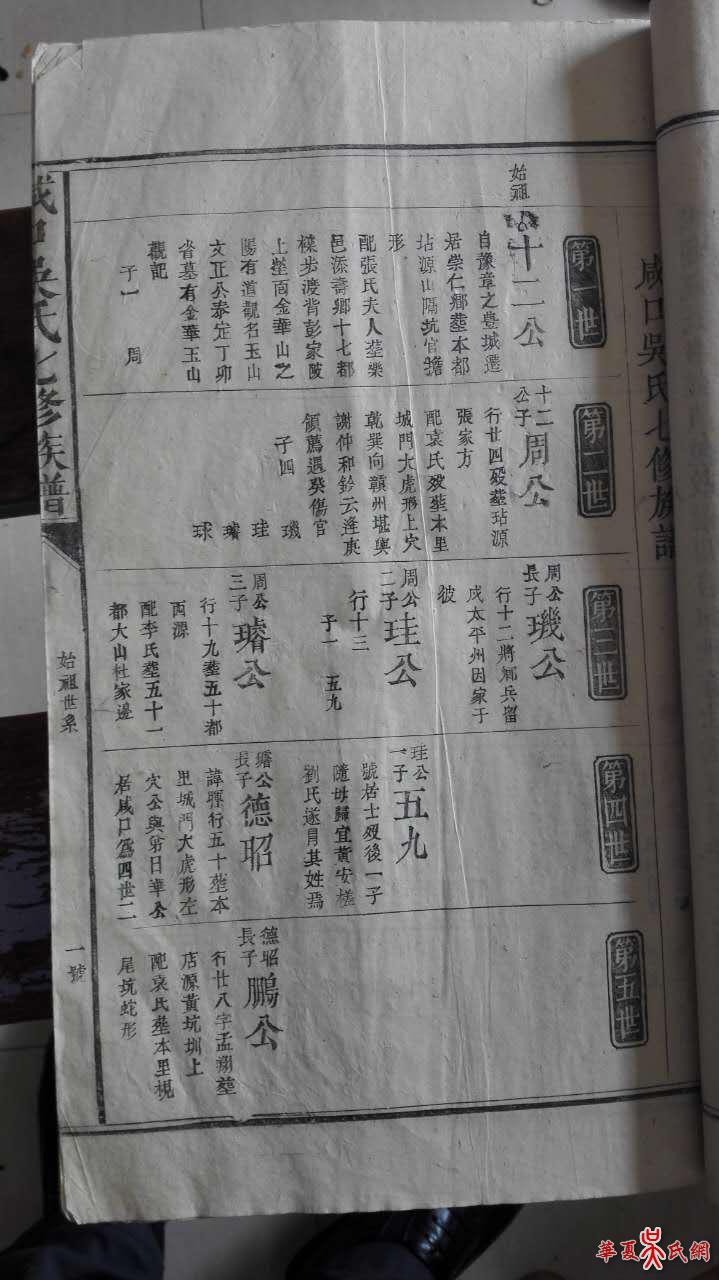 咸口吳氏七修族譜
第一世
始祖
十二公
自豫章之豊城遷
居崇仁鄉塟本都
坫源山隔坑官擔
形
配張氏夫人塟樂
邑添壽鄉十七都
上塋面金華山之
陽有道觀名玉山
文正公泰定丁卯
省墓有金華玉山
觀記
子一 周
第二世
十二公子
周公
行廿四殁塟坫源
張家方
配袁氏殁塟本里
城門大虎形上穴
乾巽向贛州堪輿
謝仲和鈐云逢庚
領薦遇癸傷官
子四
璣 珪 璿 球
第三世
周公長子
璣公
行十二將鄉兵留
戍太平州因家于
彼
周公二子
珪公
行十三
子一 五九
周公三子
璿公
行十九塟五十都
丙源
配李氏塟五十一
都大山杜家邊
第四世
珪公一子
五九
號居士殁後一子
隨母歸宜黃安槎
劉氏遂冐其姓焉
璿公長子
德昭
諱暉行五十塟本
里城門大虎形左
穴公與弟日華公
居咸口爲四世二
第五世
德昭長子
鵬公
行廿八字孟翔塟
店源黃坑圳上
配袁氏塟本里枧
尾坑蛇形
咸口吳氏七修族譜
始祖世系
一號
華夏吳氏網